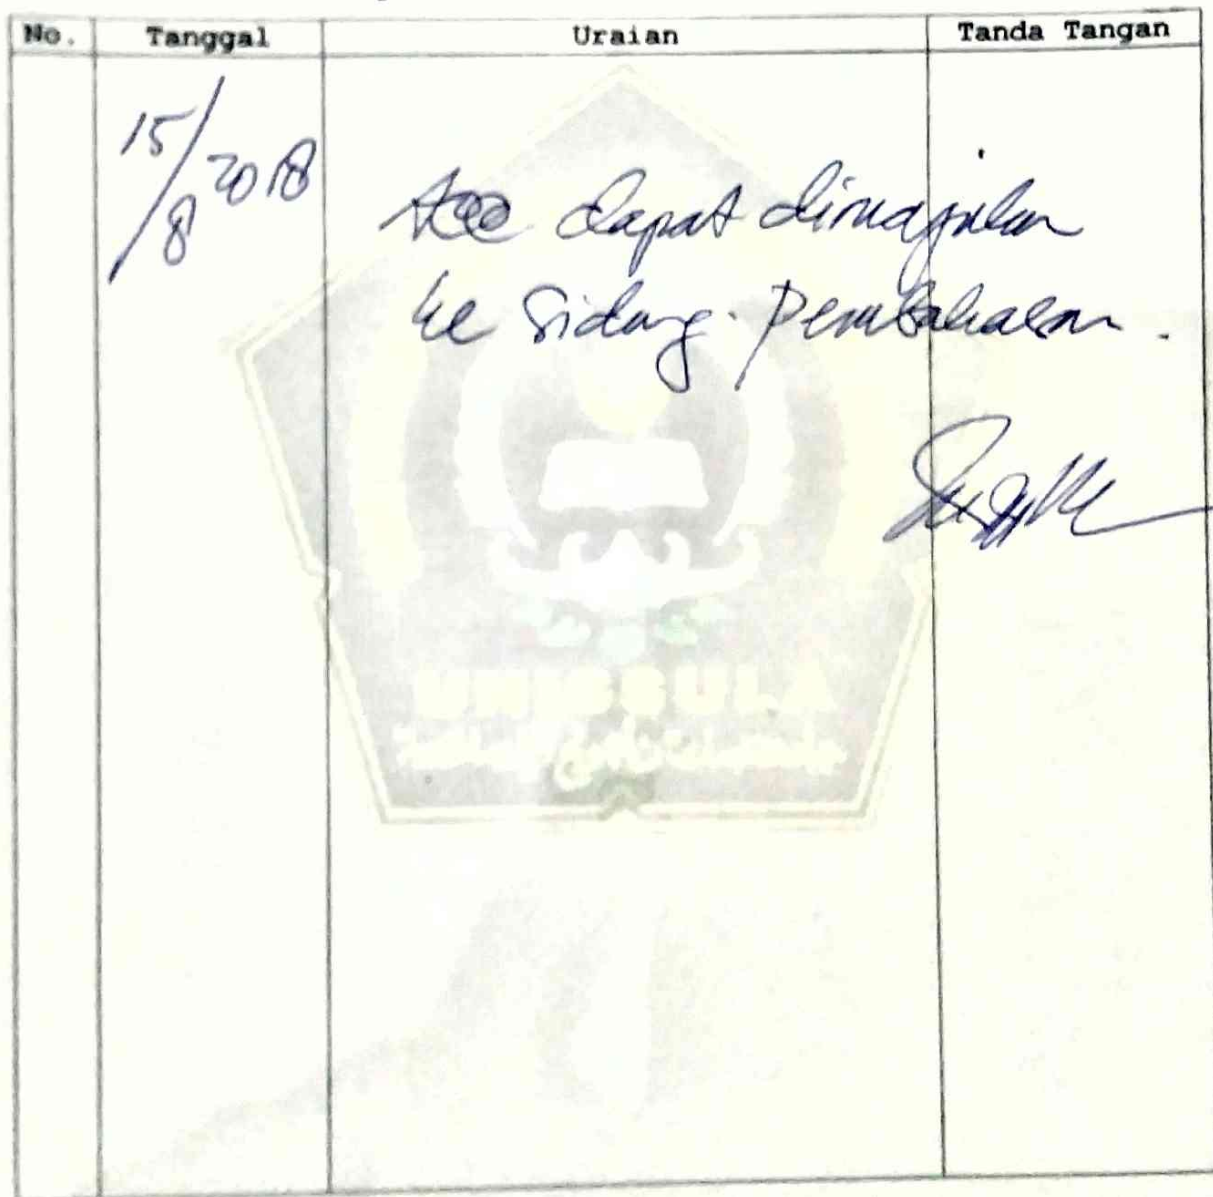 No. Tanggal Uraian Tanda Tangan
15/8 2018
Acc dapat dimajukan
ke Sidang Pembahasan.
UNISSULA